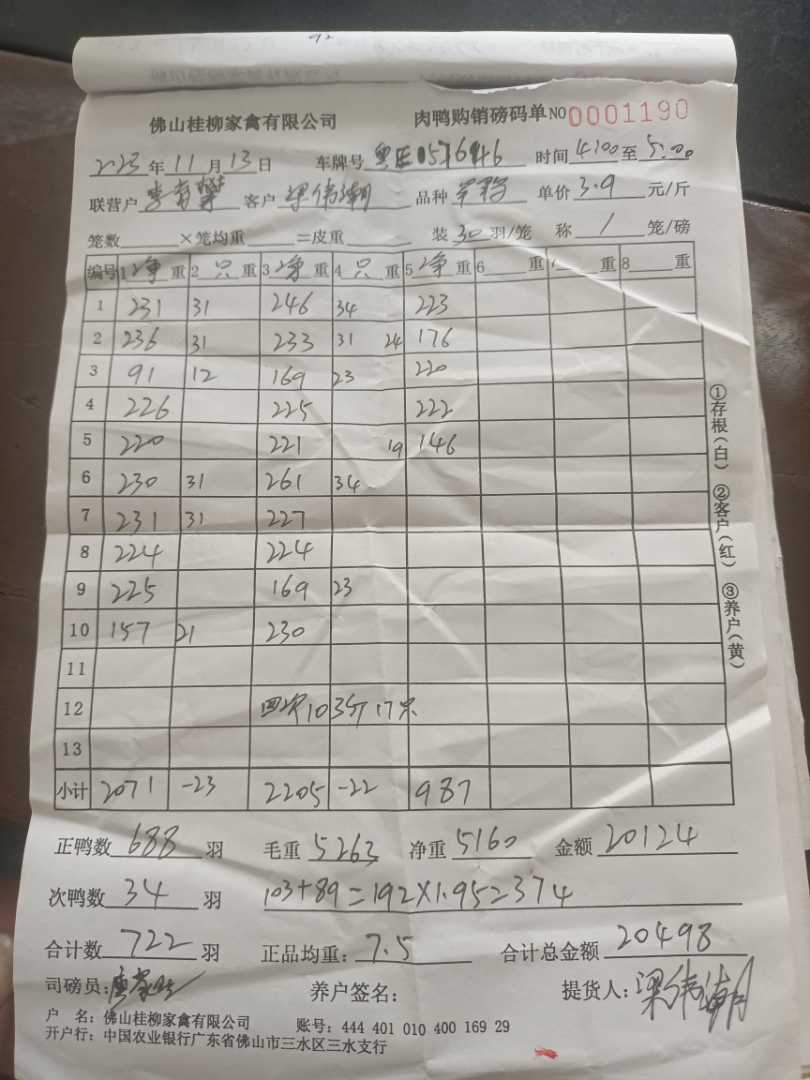 佛山桂柳家禽有限公司 肉鸭购销磅码单 NO 0001190
2023年11月13日 车牌号 时间 4:00至5:00
联营户 客户 梁伟潮 品种 单价 3.9 元/斤
笼数 ×笼均重 =皮重 装 30 羽/笼 称 1 笼/磅
编号 1 净 重 2 只 重 3 净 重 4 只 重 5 净 重 6 重 7 重 8 重
1 231 31 246 34 223
2 236 31 233 31 24 176
3 91 12 169 23 220
4 226 225 222
5 220 221 19 146
6 230 31 261 34
7 231 31 227
8 224 224
9 225 169 23
10 157 21 230
11
12 回净103斤17只
13
小计 2071 -23 2205 -22 987
正鸭数 688 羽 毛重 5263 净重 5160 金额 20124
次鸭数 34 羽 103+89=192×1.95=374
合计数 722 羽 正品均重: 7.5 合计总金额 20498
司磅员: 养户签名: 提货人: 梁伟潮
户 名: 佛山桂柳家禽有限公司 账号: 444 401 010 400 169 29
开户行: 中国农业银行广东省佛山市三水区三水支行
①存根(白) ②客户(红) ③养户(黄)